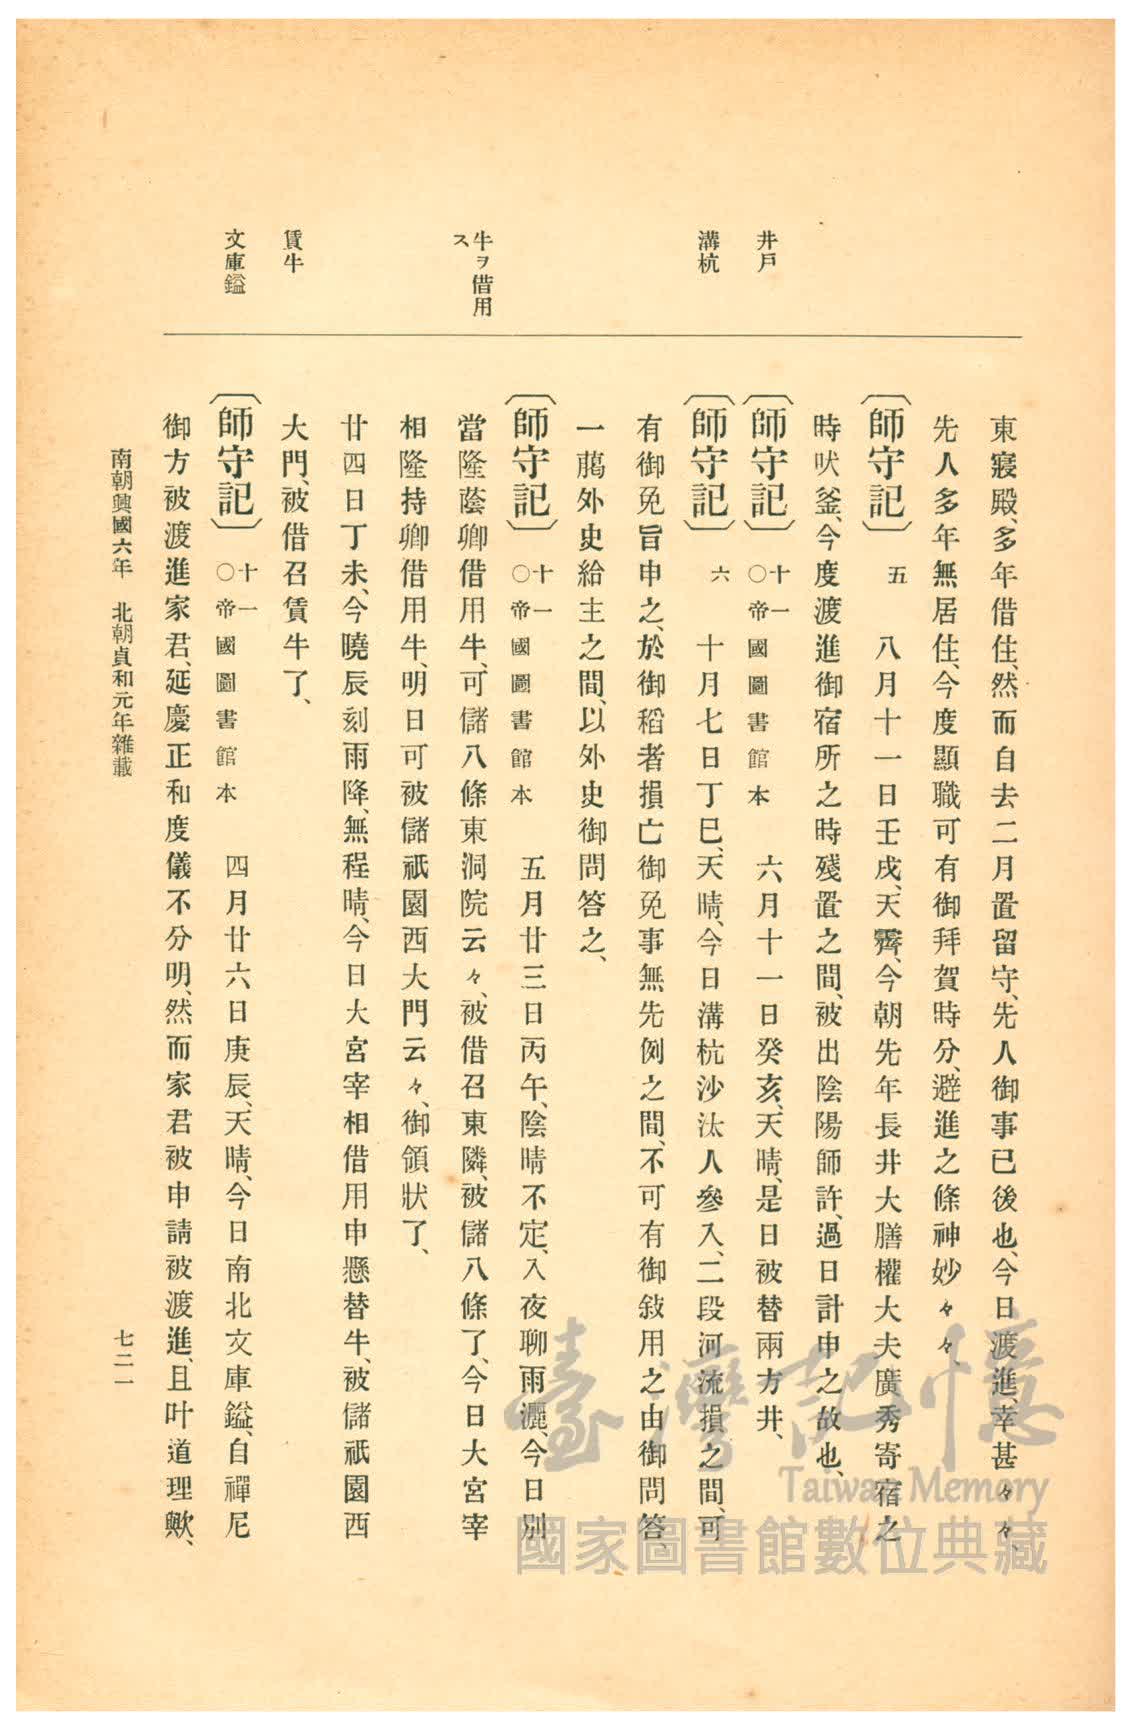 井戶
溝杭
牛ヲ借用
ス
賃牛
文庫鎰
東寢殿、多年借住、然而自去二月置留守、先人御事已後也、今日渡進、幸甚々々、
先人多年無居住、今度顯職可有御拜賀時分、避進之條神妙々々、
〔師守記〕 五 八月十一日壬戌、天霽、今朝先年長井大膳權大夫廣秀寄宿之
時吠釜、今度渡進御宿所之時殘置之間、被出陰陽師許、過日計申之故也、
〔師守記〕 十一 ○帝國圖書館本 六月十一日癸亥、天晴、是日被替兩方井、
〔師守記〕 六 十月七日丁巳、天晴、今日溝杭沙汰人參入、二段河流損之間、可
有御免旨申之、於御稻者損亡御免事無先例之間、不可有御敍用之由御問答、
一﨟外史給主之間、以外史御問答之、
〔師守記〕 十一 ○帝國圖書館本 五月廿三日丙午、陰晴不定、入夜聊雨灑、今日別
當隆蔭卿借用牛、可儲八條東洞院云々、被借召東隣、被儲八條了、今日大宮宰
相隆持卿借用牛、明日可被儲祇園西大門云々、御領狀了、
廿四日丁未、今曉辰刻雨降、無程晴、今日大宮宰相借用申懸替牛、被儲祇園西
大門、被借召賃牛了、
〔師守記〕 十一 ○帝國圖書館本 四月廿六日庚辰、天晴、今日南北文庫鎰、自禪尼
御方被渡進家君、延慶正和度儀不分明、然而家君被申請被渡進、且叶道理歟、
南朝興國六年 北朝貞和元年雜載
七二一
臺灣記憶
Taiwan Memory
國家圖書館數位典藏